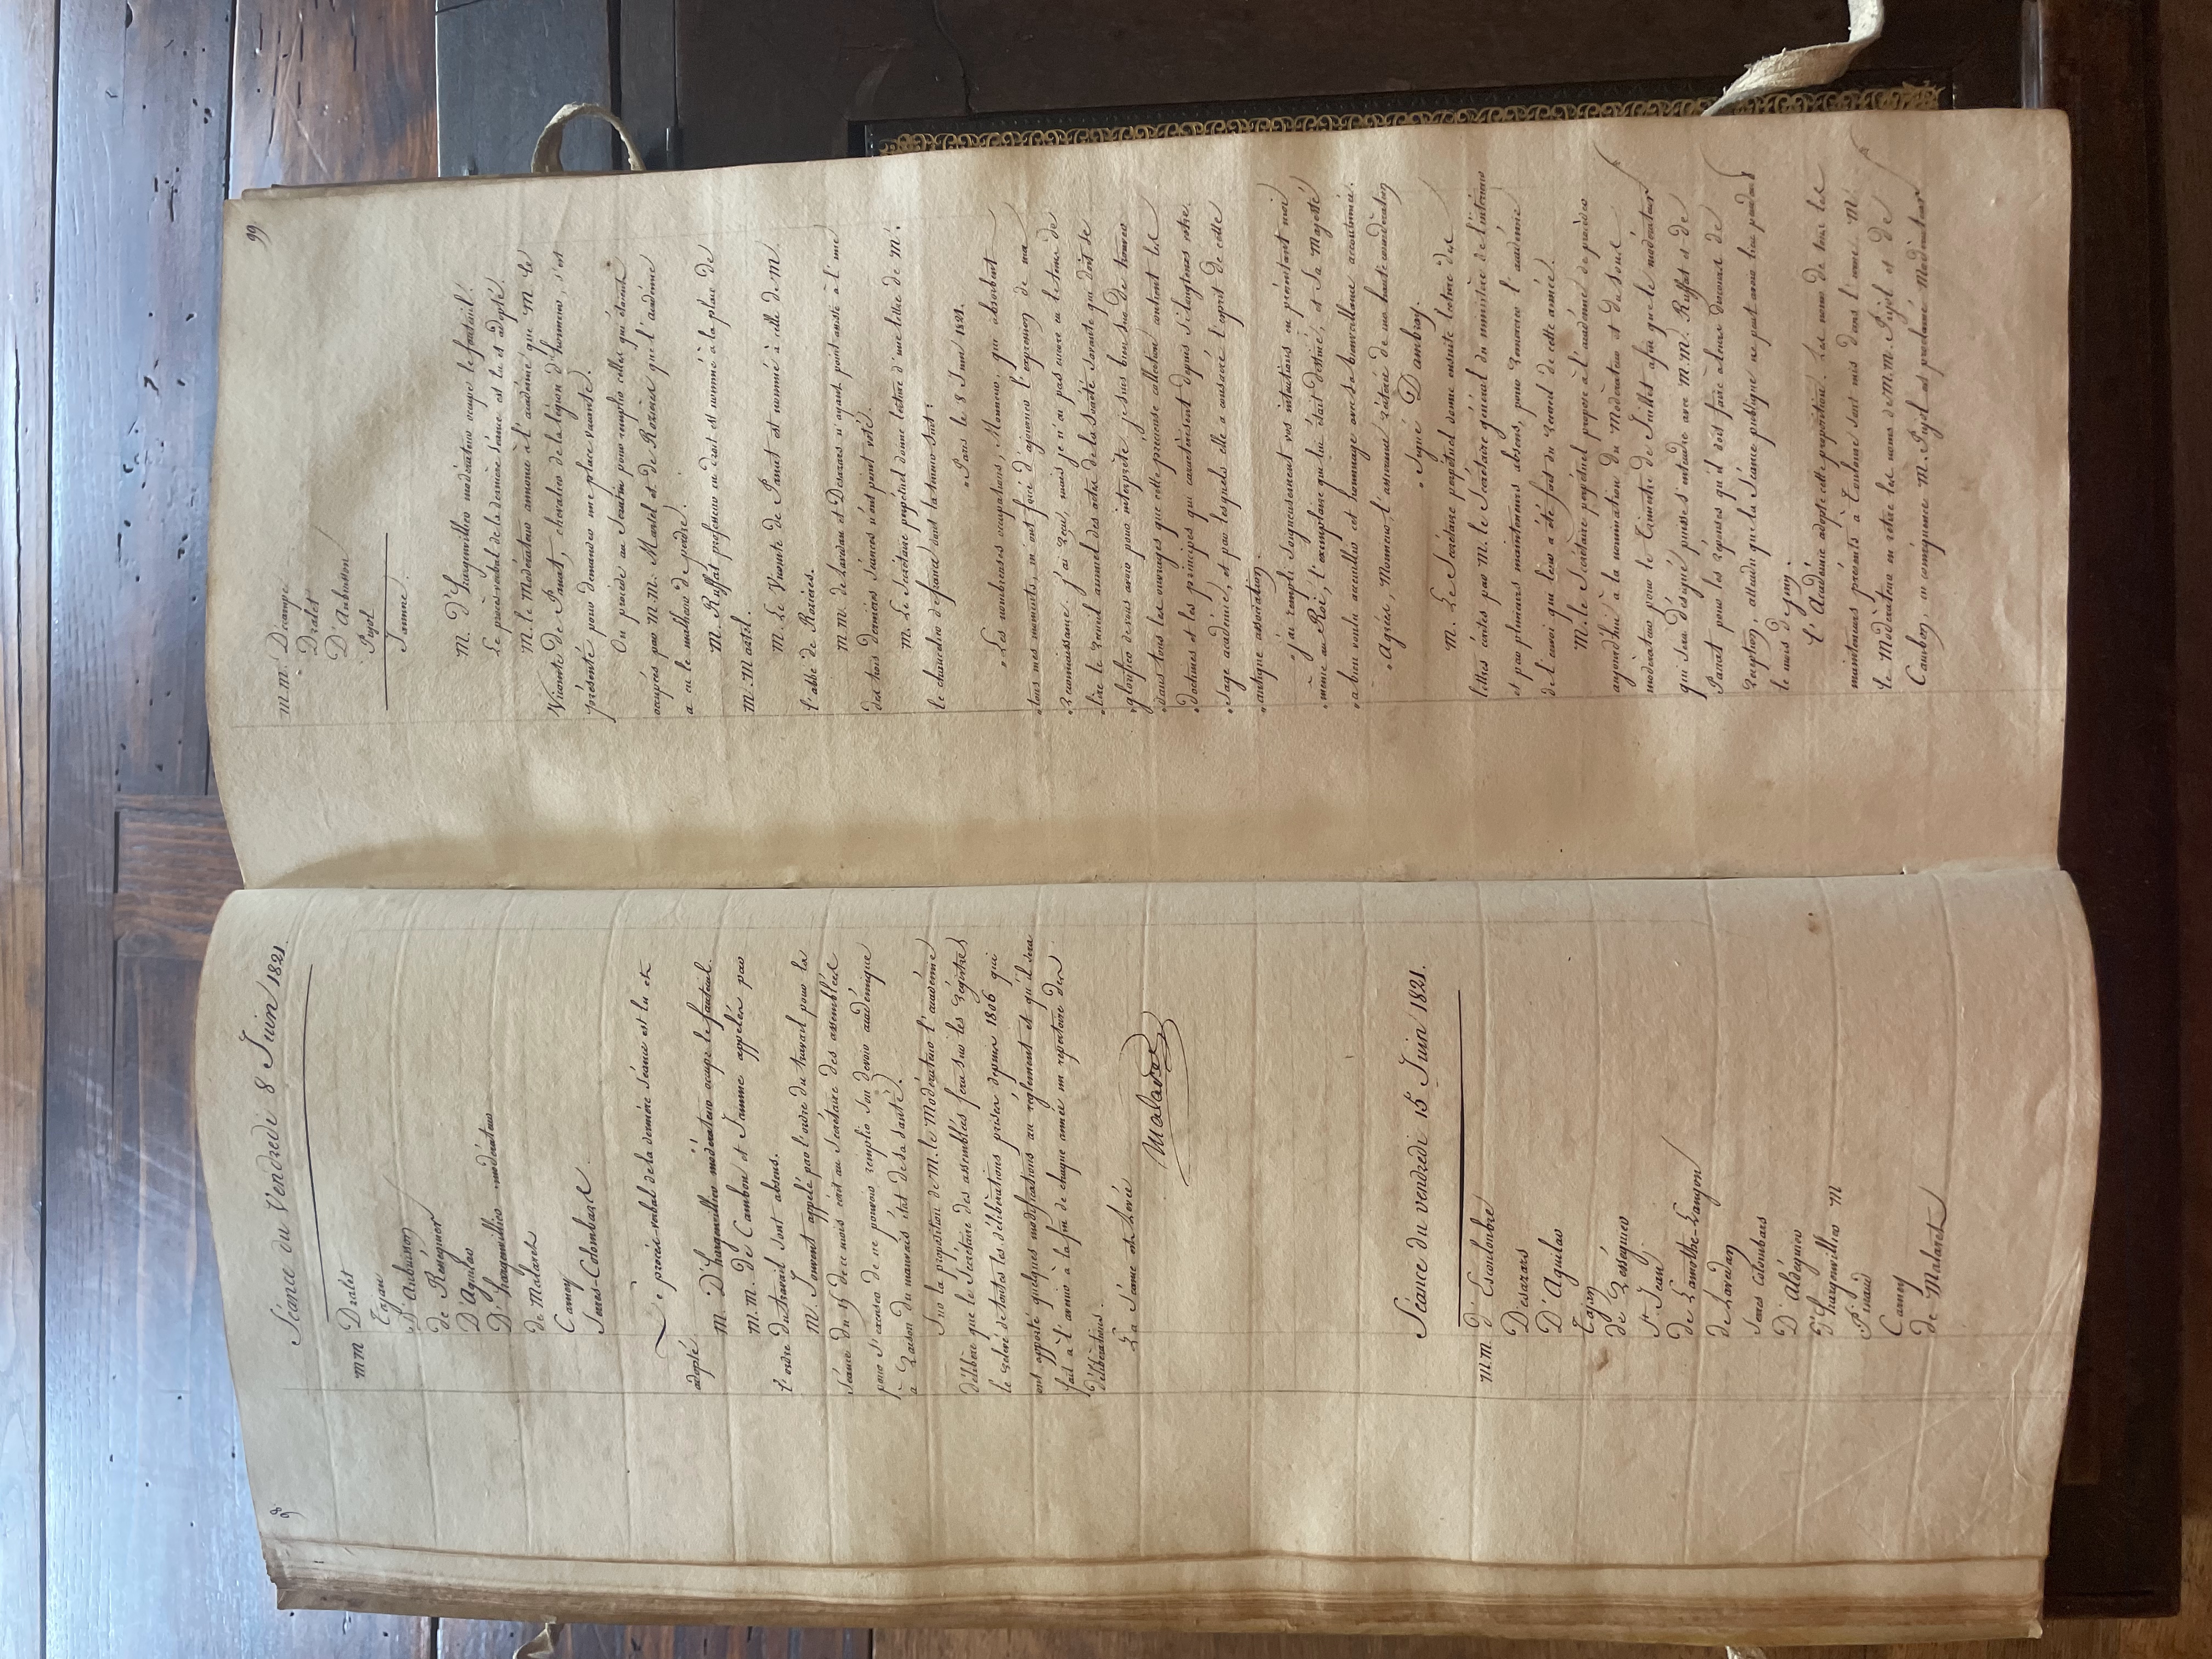 98
Séance du Vendredi 8 Juin 1821.
MM Dralet
Tajan
D'Aubuisson
de Rességuier
D'Aguilar
D'hargenvillier modérateur
de Malaret
Carney
Serres-Colombars
Le procès-verbal de la dernière séance est lu et
adopté.
M. D'hargenvillier modérateur occupe le fauteuil.
M.M. de Cambon et Jamme appelés par
l'ordre du travail sont absens.
M. Jouvent appelé par l'ordre du travail pour la
séance du 15 de ce mois écrit au Secrétaire des assemblées
pour s'excuser de ne pouvoir remplir son devoir académique
à raison du mauvais état de sa santé.
Sur la proposition de M. le Modérateur l'académie
délibère que le Secrétaire des assemblées fera sur les régistres
le relevé de toutes les délibérations prises depuis 1806 qui
ont apporté quelques modifications au règlement et qu'il sera
fait à l'avenir à la fin de chaque année un repertoire des
délibérations.
La Séance est Levée
Malaret
Séance du vendredi 15 Juin 1821.
M.M. d'Escouloubre
Desazars
D'Aguilar
Tajan
de Rességuier
St. Jean
de Lamothe-Langon
de Lavedan
Serres Colombars
D'Aldéguier
D'hargenvillier M
Pinaud
Carney
de Malaret
99
M.M. Décampe
Dralet
D'Aubuisson
Pujol
Jamme.
M. D'Hargenvillier modérateur occupe le fauteuil.
Le procès-verbal de la dernière séance est lu et adopté.
M. le Modérateur annonce à l'académie que M. le
Vicomte de Panat, chevalier de la légion d'honneur, s'est
présenté pour demander une place vacante.
On procède au Scrutin pour remplir celles qui étaient
occupées par M.M. Martel et de Rozières que l'académie
a eu le malheur de perdre.
M. Ruffat professeur en droit est nommé à la place de
M. Martel.
M. Le Vicomte de Panat est nommé à celle de M.
l'abbé de Rozières.
M.M. de Lavedan et Desazars n'ayant point assisté à l'une
des trois dernières séances n'ont point voté.
M. Le Secrétaire perpétuel donne lecture d'une lettre de M.
le chancelier de france dont la teneur suit:
« Paris le 8 Juin 1821.
« Les nombreuses occupations, Monsieur, qui absorbent
« tous mes moments, m'ont forcé d'ajourner l'expression de ma
« reconnaissance. j'ai reçu, mais je n'ai pas encore eu le tems de
« lire le recueil annuel des actes de la Société Savante qui doit se
« glorifier de vous avoir pour interprète; je suis bien sûr de trouver
« dans tous les ouvrages que cette précieuse collection contient les
« doctrines et les principes qui caractérisent depuis si longtems votre
« Sage académie, et par lesquels elle a consacré l'esprit de cette
« antique association.
« j'ai rempli soigneusement vos intentions en présentant moi
« même au Roi, l'exemplaire qui lui était destiné, et Sa Majesté
« a bien voulu accueillir cet hommage avec sa bienveillance accoutumée.
« Agréez, Monsieur, l'assurance réitérée de ma haute considération
« Signé Dambray.
M. Le Secrétaire perpétuel donne ensuite lecture des
lettres écrites par M. le Secrétaire général du ministère de l'intérieur
et par plusieurs mainteneurs absens, pour remercier l'académie
de l'envoi qui leur a été fait du recueil de cette année.
M. le Secrétaire perpétuel propose à l'académie de procéder
aujourd'hui à la nomination du Modérateur et du Sous
modérateur pour le Trimestre de Juillet afin que le modérateur
qui sera désigné puisse s'entendre avec M.M. Ruffat et de
Panat pour les réponses qu'il doit faire à leurs discours de
réception, attendu que la Séance publique ne peut avoir lieu pendant
le mois de juin.
L'Académie adopte cette proposition. Les noms de tous les
mainteneurs présents à Toulouse sont mis dans l'urne. M.
le Modérateur en retire les noms de M.M. Pujol et de
Cambon, en conséquence M. Pujol est proclamé Modérateur